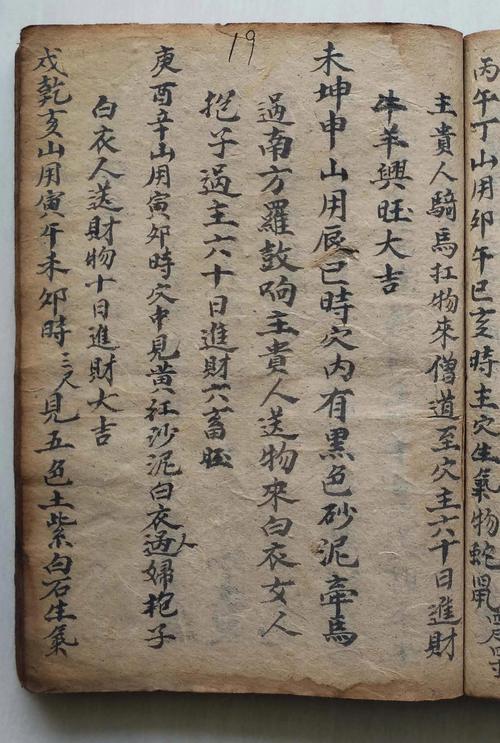 丙午丁山用卯午巳亥時主穴生氣物蛇鼠
主貴人騎馬扛物來僧道至穴主六十日進財
牛羊興旺大吉
未坤申山用辰巳時穴內有黑色砂泥牽馬
過南方羅鼓响主貴人送物來白衣女人
抱子過主六十日進財六畜旺
庚酉辛山用寅卯時穴中見黃紅沙泥白衣人過婦抱子
白衣人送財物十日進財大吉
戌乾亥山用寅午未卯時三尺見五色土紫白石生氣
19